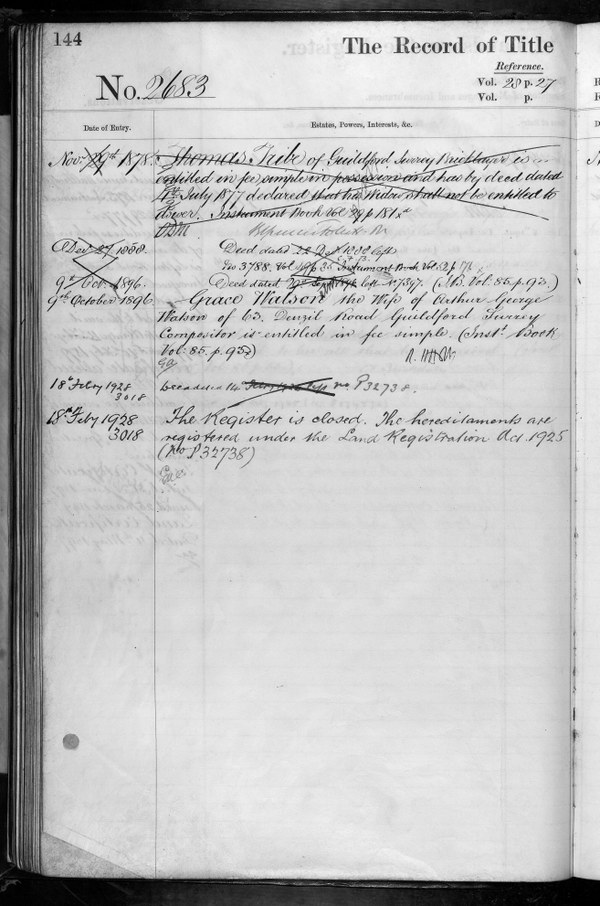 144
The Record of Title
Reference.
No. 2683
Vol. 28 p. 27
Vol. p.
Date of Entry.
Estates, Powers, Interests, &c.
Nov. 29th 1878. Thomas Tribe of Guildford Surrey Bricklayer is
entitled in fee simple in possession and has by deed dated
July 1877 declared that his Widow shall not be entitled to
dower. Instrument Book Vol. 29 p 181
Decr 27 1888. Deed dated 22 1888
No 3788. Vol. Instrument Book Vol. p
9th Oct. 1896. Deed dated 29th Septr No 7397. (I.B. Vol. 85. p. 93.)
9th October 1896 Grace Watson the Wife of Arthur George
Watson of 63. Denzil Road Guildford Surrey
Compositor is entitled in fee simple. (Inst. Book
Vol. 85. p. 95)
18th Feby 1928
3018
no P32738.
18th Feby 1928 The Register is closed. The hereditaments are
3018 registered under the Land Registration Act. 1925
(No P32738)